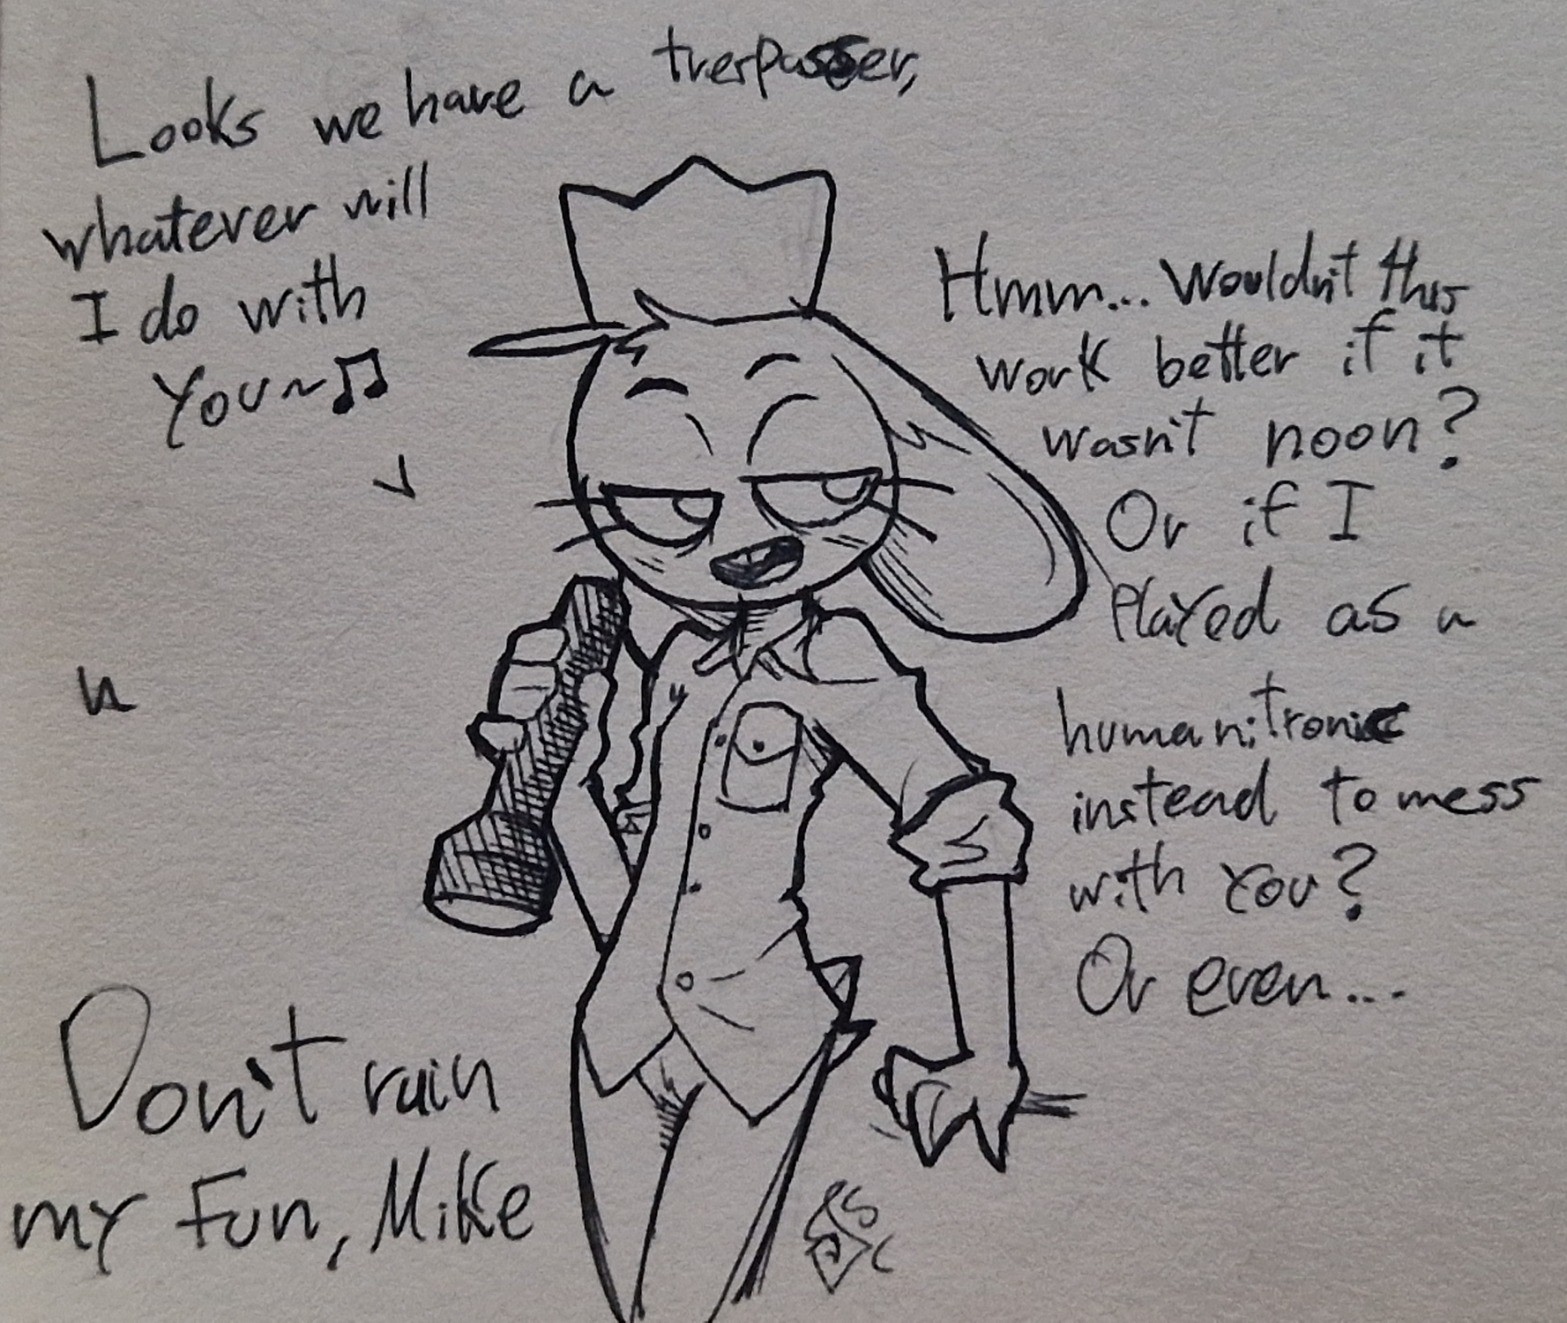 Looks we have a trerpasser,
whatever will
I do with
You~♫
Hmm... Wouldn't this
work better if it
wasn't noon?
Or if I
Played as a
humanitronic
instead to mess
with You?
Or even...
Don't ruin
my Fun, Mike